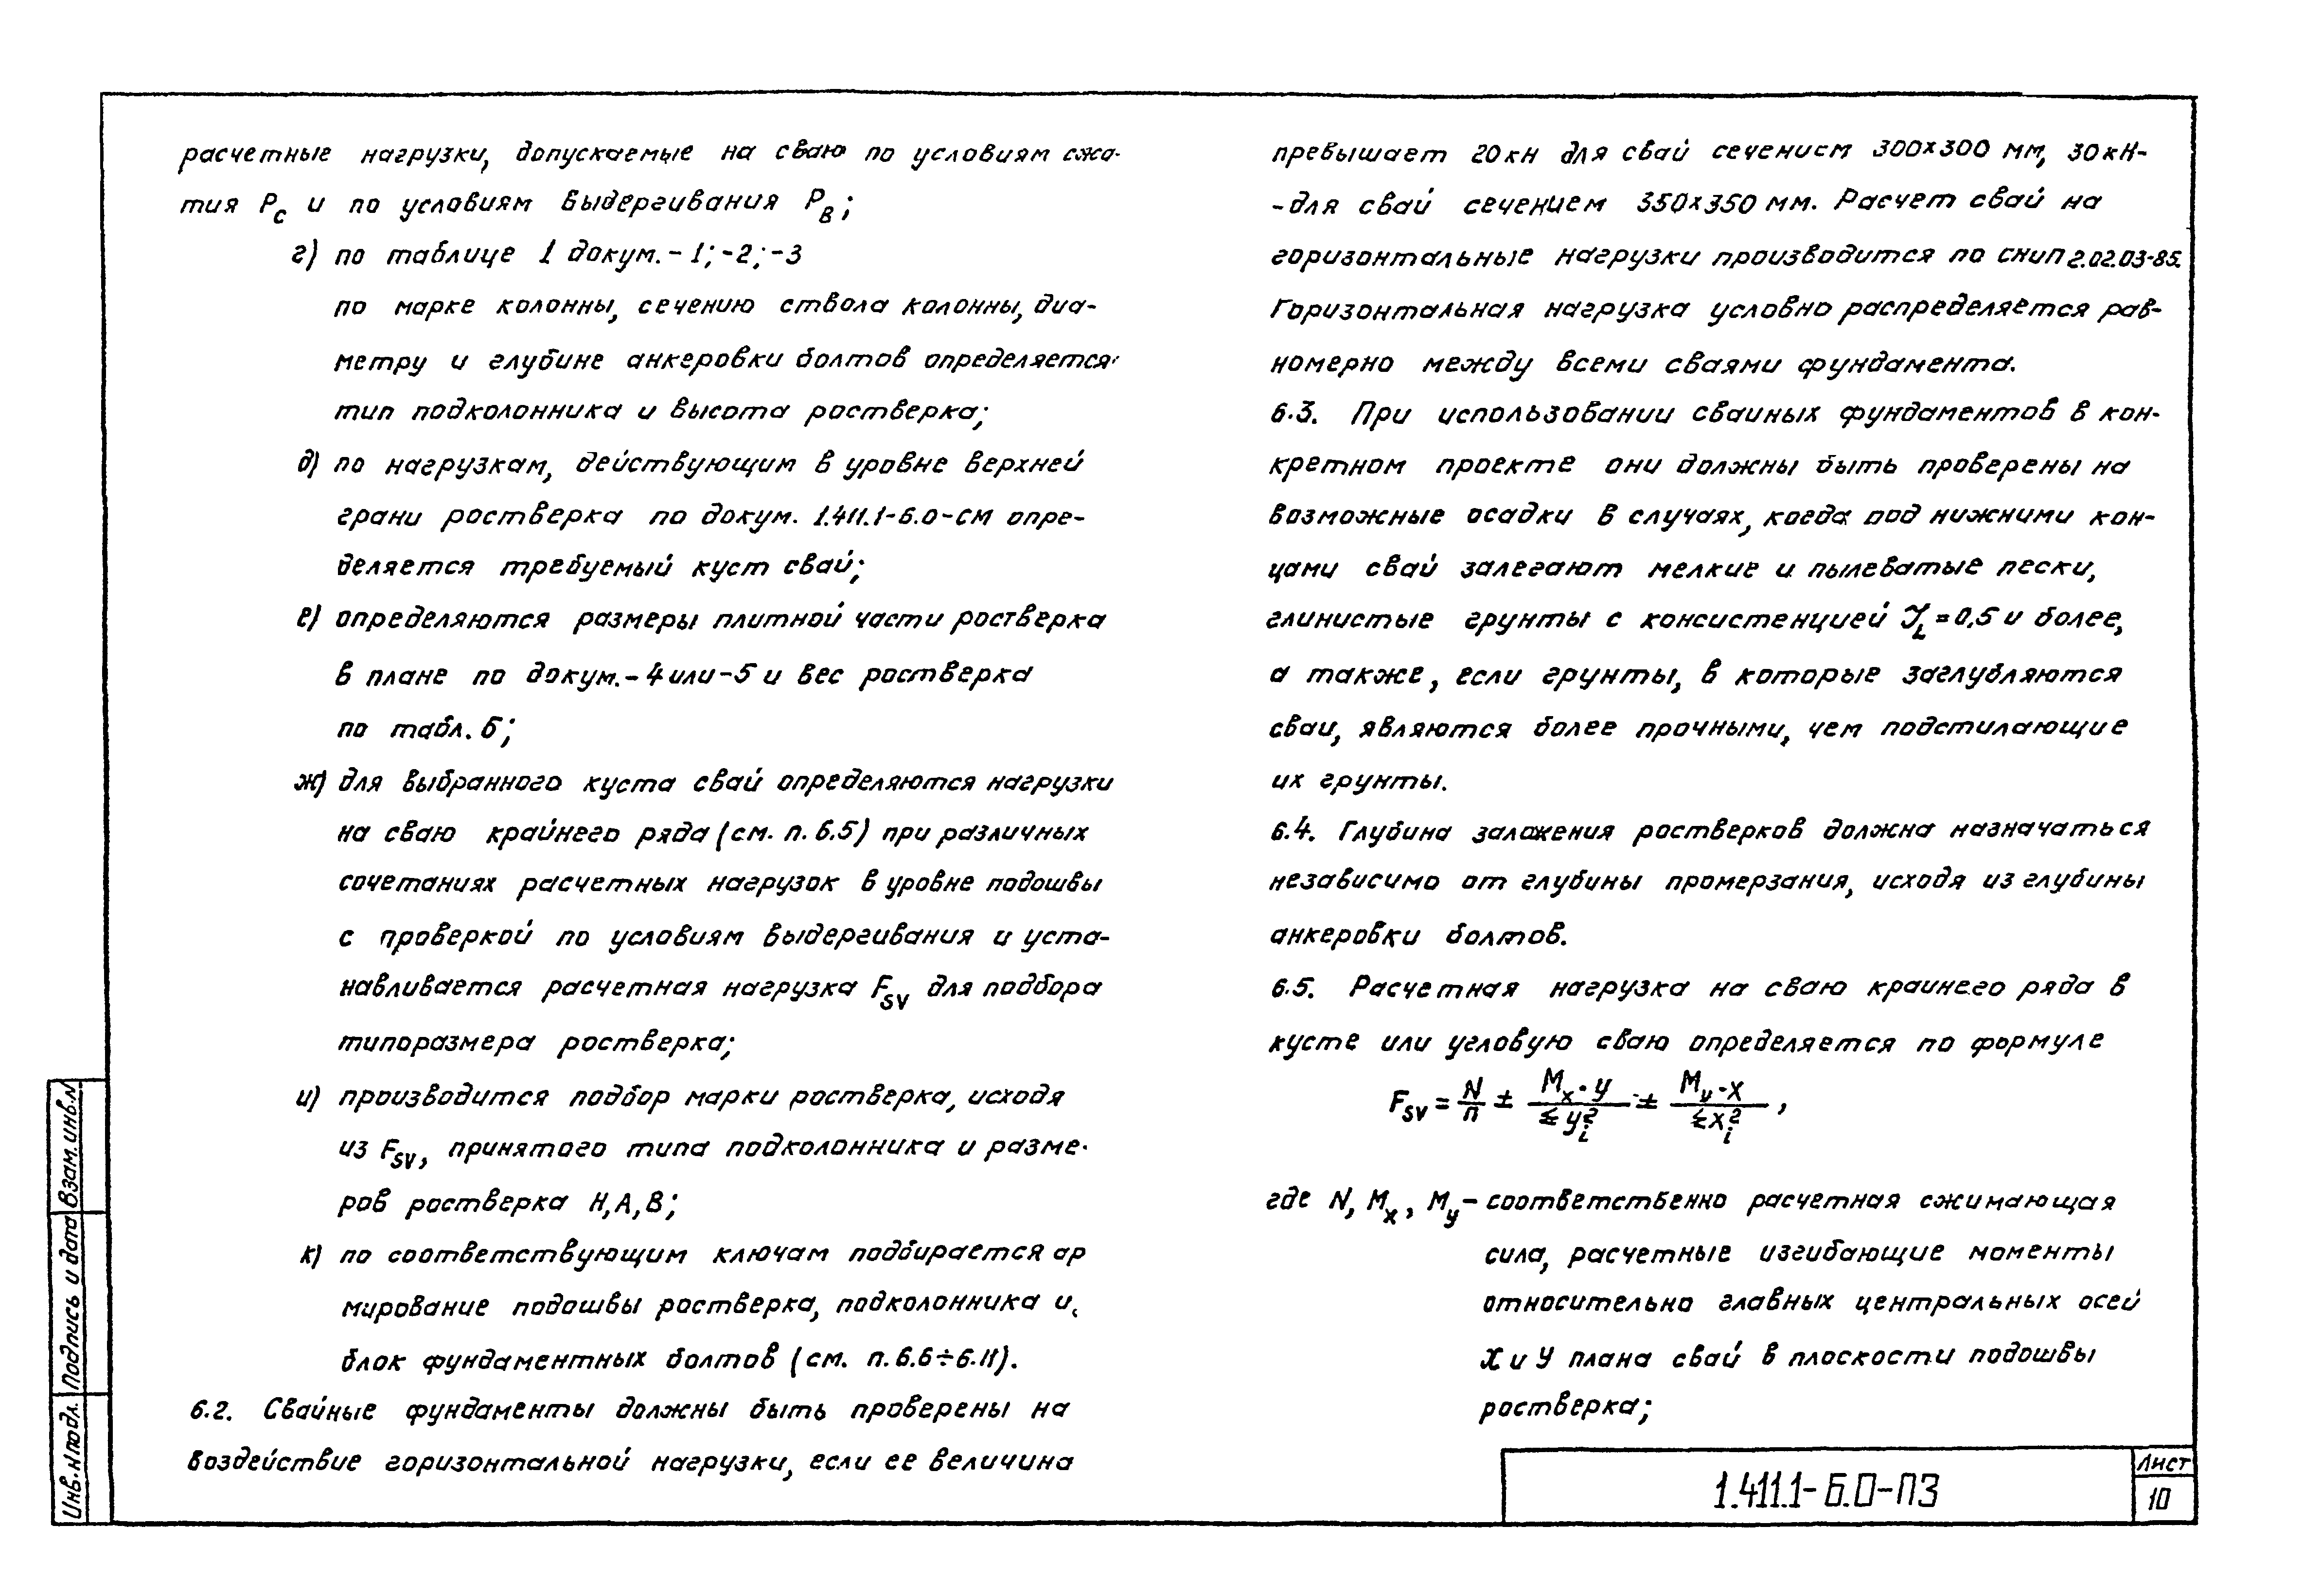 расчетные нагрузки, допускаемые на сваю по условиям сжа-
тия Pс и по условиям выдергивания Pв;
г) по таблице 1 докум. -1; -2; -3
по марке колонны, сечению ствола колонны, диа-
метру и глубине анкеровки болтов определяется
тип подколонника и высота ростверка;
д) по нагрузкам, действующим в уровне верхней
грани ростверка по докум. 1.411.1-6.0-СМ опре-
деляется требуемый куст свай;
е) определяются размеры плитной части ростверка
в плане по докум. -4 или -5 и вес ростверка
по табл. 6;
ж) для выбранного куста свай определяются нагрузки
на сваю крайнего ряда (см. п. 6.5) при различных
сочетаниях расчетных нагрузок в уровне подошвы
с проверкой по условиям выдергивания и уста-
навливается расчетная нагрузка Fsv для подбора
типоразмера ростверка;
и) производится подбор марки ростверка, исходя
из Fsv, принятого типа подколонника и разме-
ров ростверка H, A, B;
к) по соответствующим ключам подбирается ар
мирование подошвы ростверка, подколонника и
блок фундаментных болтов (см. п. 6.6÷6.11).
6.2. Свайные фундаменты должны быть проверены на
воздействие горизонтальной нагрузки, если ее величина
превышает 20 кН для свай сечением 300×300 мм, 30 кН-
-для свай сечением 350×350 мм. Расчет свай на
горизонтальные нагрузки производится по СНиП 2.02.03-85.
Горизонтальная нагрузка условно распределяется рав-
номерно между всеми сваями фундамента.
6.3. При использовании свайных фундаментов в кон-
кретном проекте они должны быть проверены на
возможные осадки в случаях, когда под нижними кон-
цами свай залегают мелкие и пылеватые пески,
глинистые грунты с консистенцией JL = 0,5 и более,
а также, если грунты, в которые заглубляются
сваи, являются более прочными, чем подстилающие
их грунты.
6.4. Глубина заложения ростверков должна назначаться
независимо от глубины промерзания, исходя из глубины
анкеровки болтов.
6.5. Расчетная нагрузка на сваю крайнего ряда в
кусте или угловую сваю определяется по формуле
Fsv = N/n ± Mx·y/Σyi² ± My·x/Σxi²,
где N, Mx, My - соответственно расчетная сжимающая
сила, расчетные изгибающие моменты
относительно главных центральных осей
X и У плана свай в плоскости подошвы
ростверка;
Инв. N подл. Подпись и дата Взам. инв. N
1.411.1-6.0-ПЗ
Лист
10